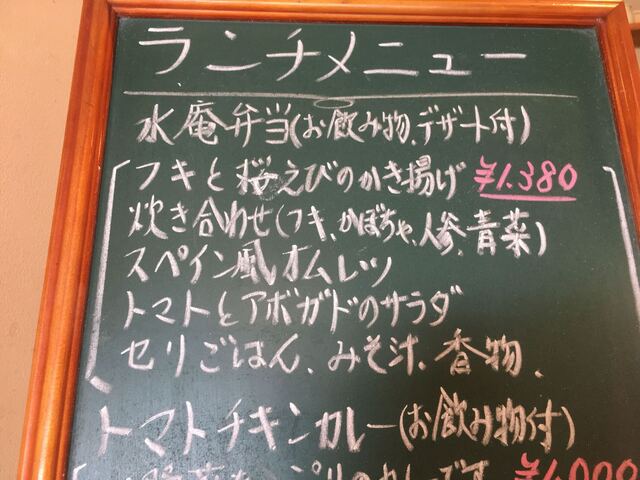 ランチメニュー
水庵弁当(お飲み物、デザート付)
フキと桜えびのかき揚げ ¥1.380
炊き合わせ(フキ、かぼちゃ、人参、青菜)
スペイン風オムレツ
トマトとアボガドのサラダ
セリごはん、みそ汁、香物、
トマトチキンカレー(お飲み物付)